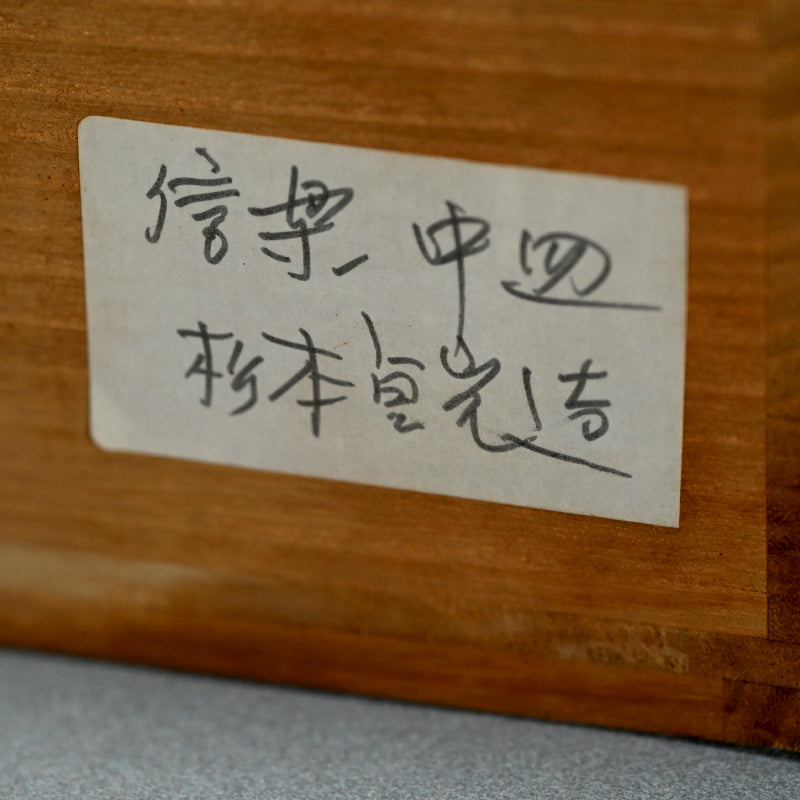 信楽 中皿
杉本貞光造